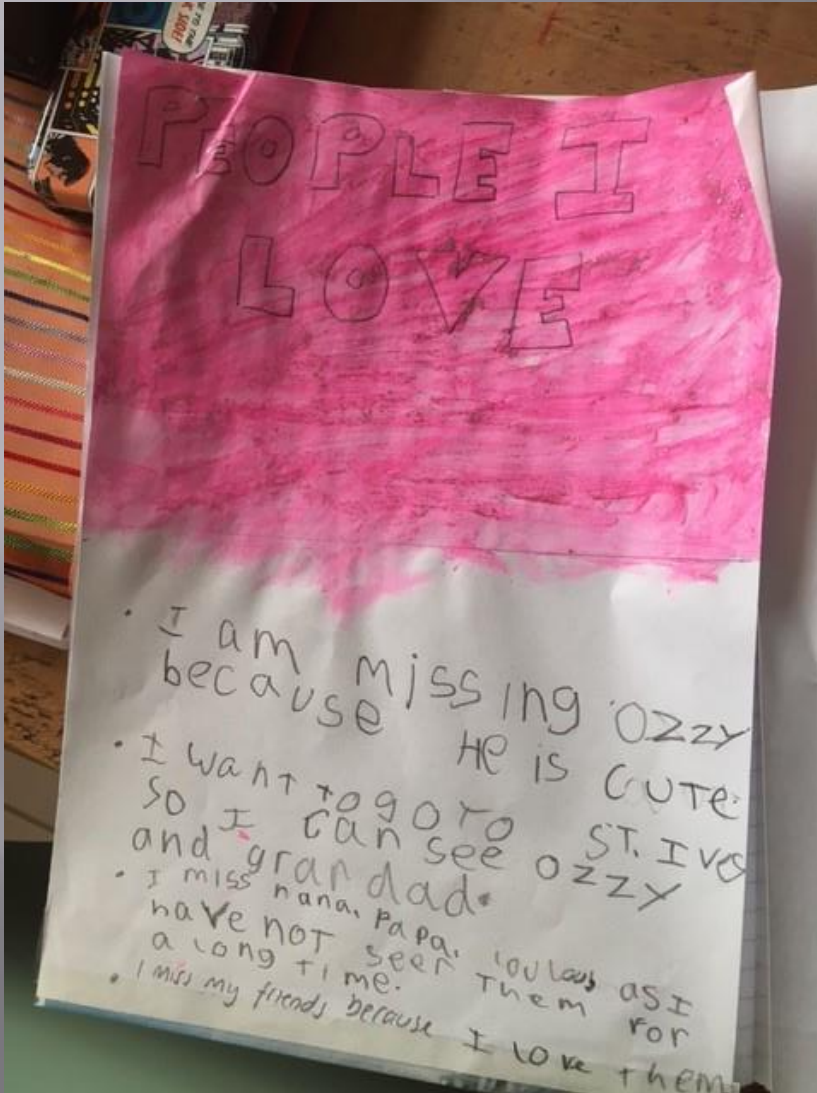 K SIDE!
PEOPLE I
LOVE
• I am missing OZZY
because He is CUTE.
• I want to go TO ST. IVes
so I can see OZZY
and grandad.
• I miss nana, papa, as I
have not seen Them For
a long time.
• I miss my friends because I love them